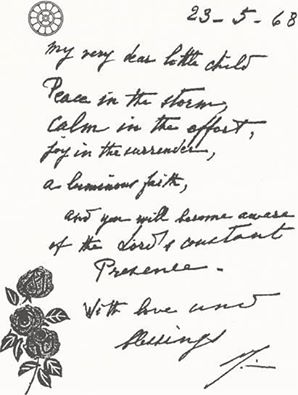 23-5-68
My very dear little child
Peace in the storm,
Calm in the effort,
joy in the surrender,
a luminous faith,
and you will become aware
of the Lord's constant
Presence.
With love and
blessings